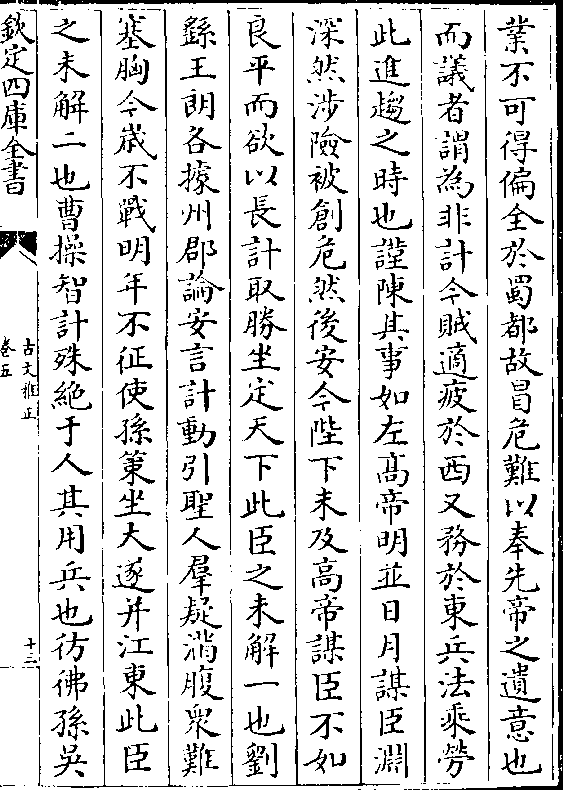 業不可得偏全於蜀都故冒危難以奉先帝之遺意也
而議者謂為非計今賊適疲於西又務於東兵法乘勞
此進趨之時也謹陳其事如左高帝明並日月謀臣淵
深然涉險被創危然後安今陛下未及高帝謀臣不如
良平而欲以長計取勝坐定天下此臣之未解一也劉
繇王朗各據州郡論安言計動引聖人羣疑滿腹衆難
塞胸今歳不戰明年不征使孫策坐大遂并江東此臣
之未解二也曹操智計殊絶于人其用兵也彷彿孫吳
欽定四庫全書
古文雅正
卷五
十三